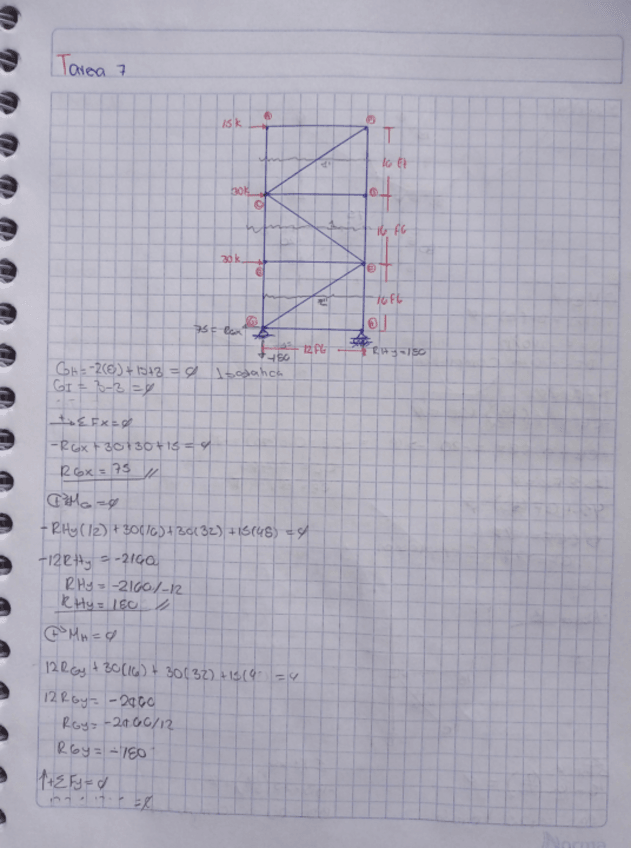 Tarea 7
15 k
16 ft
30k
16 ft
30k
16 ft
75 = RGx
12 ft
-180
RHy=180
GH=-2(8)+13+3 = 0 Isostática
GI = 3-3 = 0
+→ΣFx=0
-RGx+30+30+15=0
RGx = 75 //
MG=0
-RHy(12)+30(16)+30(32)+15(48)=0
-12RHy = -2160
RHy = -2160/-12
RHy = 180 //
MH=0
12RGy+30(16)+30(32)+15(4 =0
12RGy= -2160
RGy= -2160/12
RGy= -180
↑+ΣFy=0
Norma